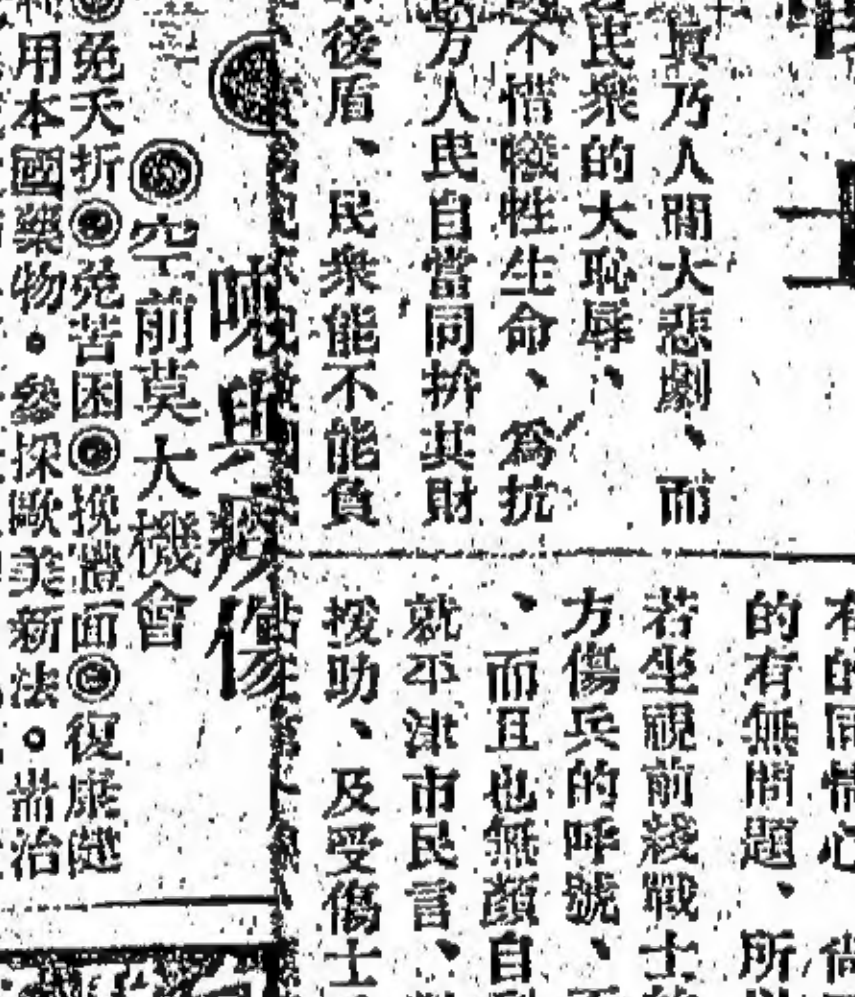 眞乃人間大悲劇、而
民衆的大恥辱、
不惜犧牲生命、爲抗
方人民自當同拚其財
後盾、民衆能不能負
有的同情心 尚
的有無問題、所
若坐視前綫戰士
方傷兵的呼號、
、而且也無顏自
就平津市民言、
援助、及受傷士
咳與癆傷
◉空前莫大機會
◉免夭折◉免苦困◉挽體面◉復康健
利用本國藥物。參採歐美新法。耑治